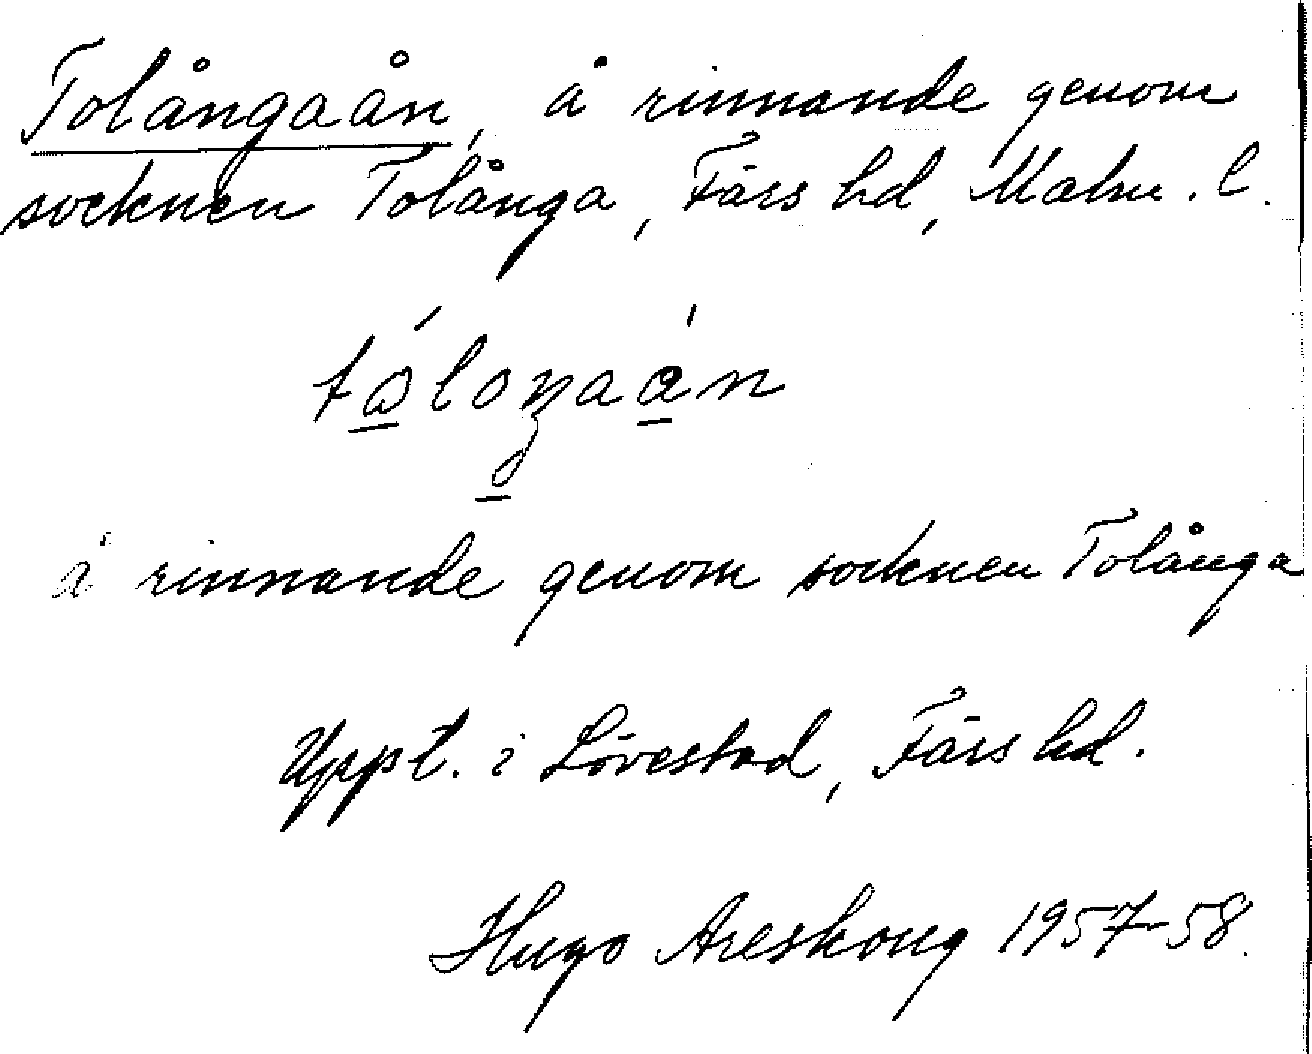 Tolångaån, å rinnande genom
socknen Tolånga, Färs hd, Malm. l.
å rinnande genom socknen Tolånga
Uppt. i Lövestad, Färs hd.
Hugo Areskoug 1957-58.